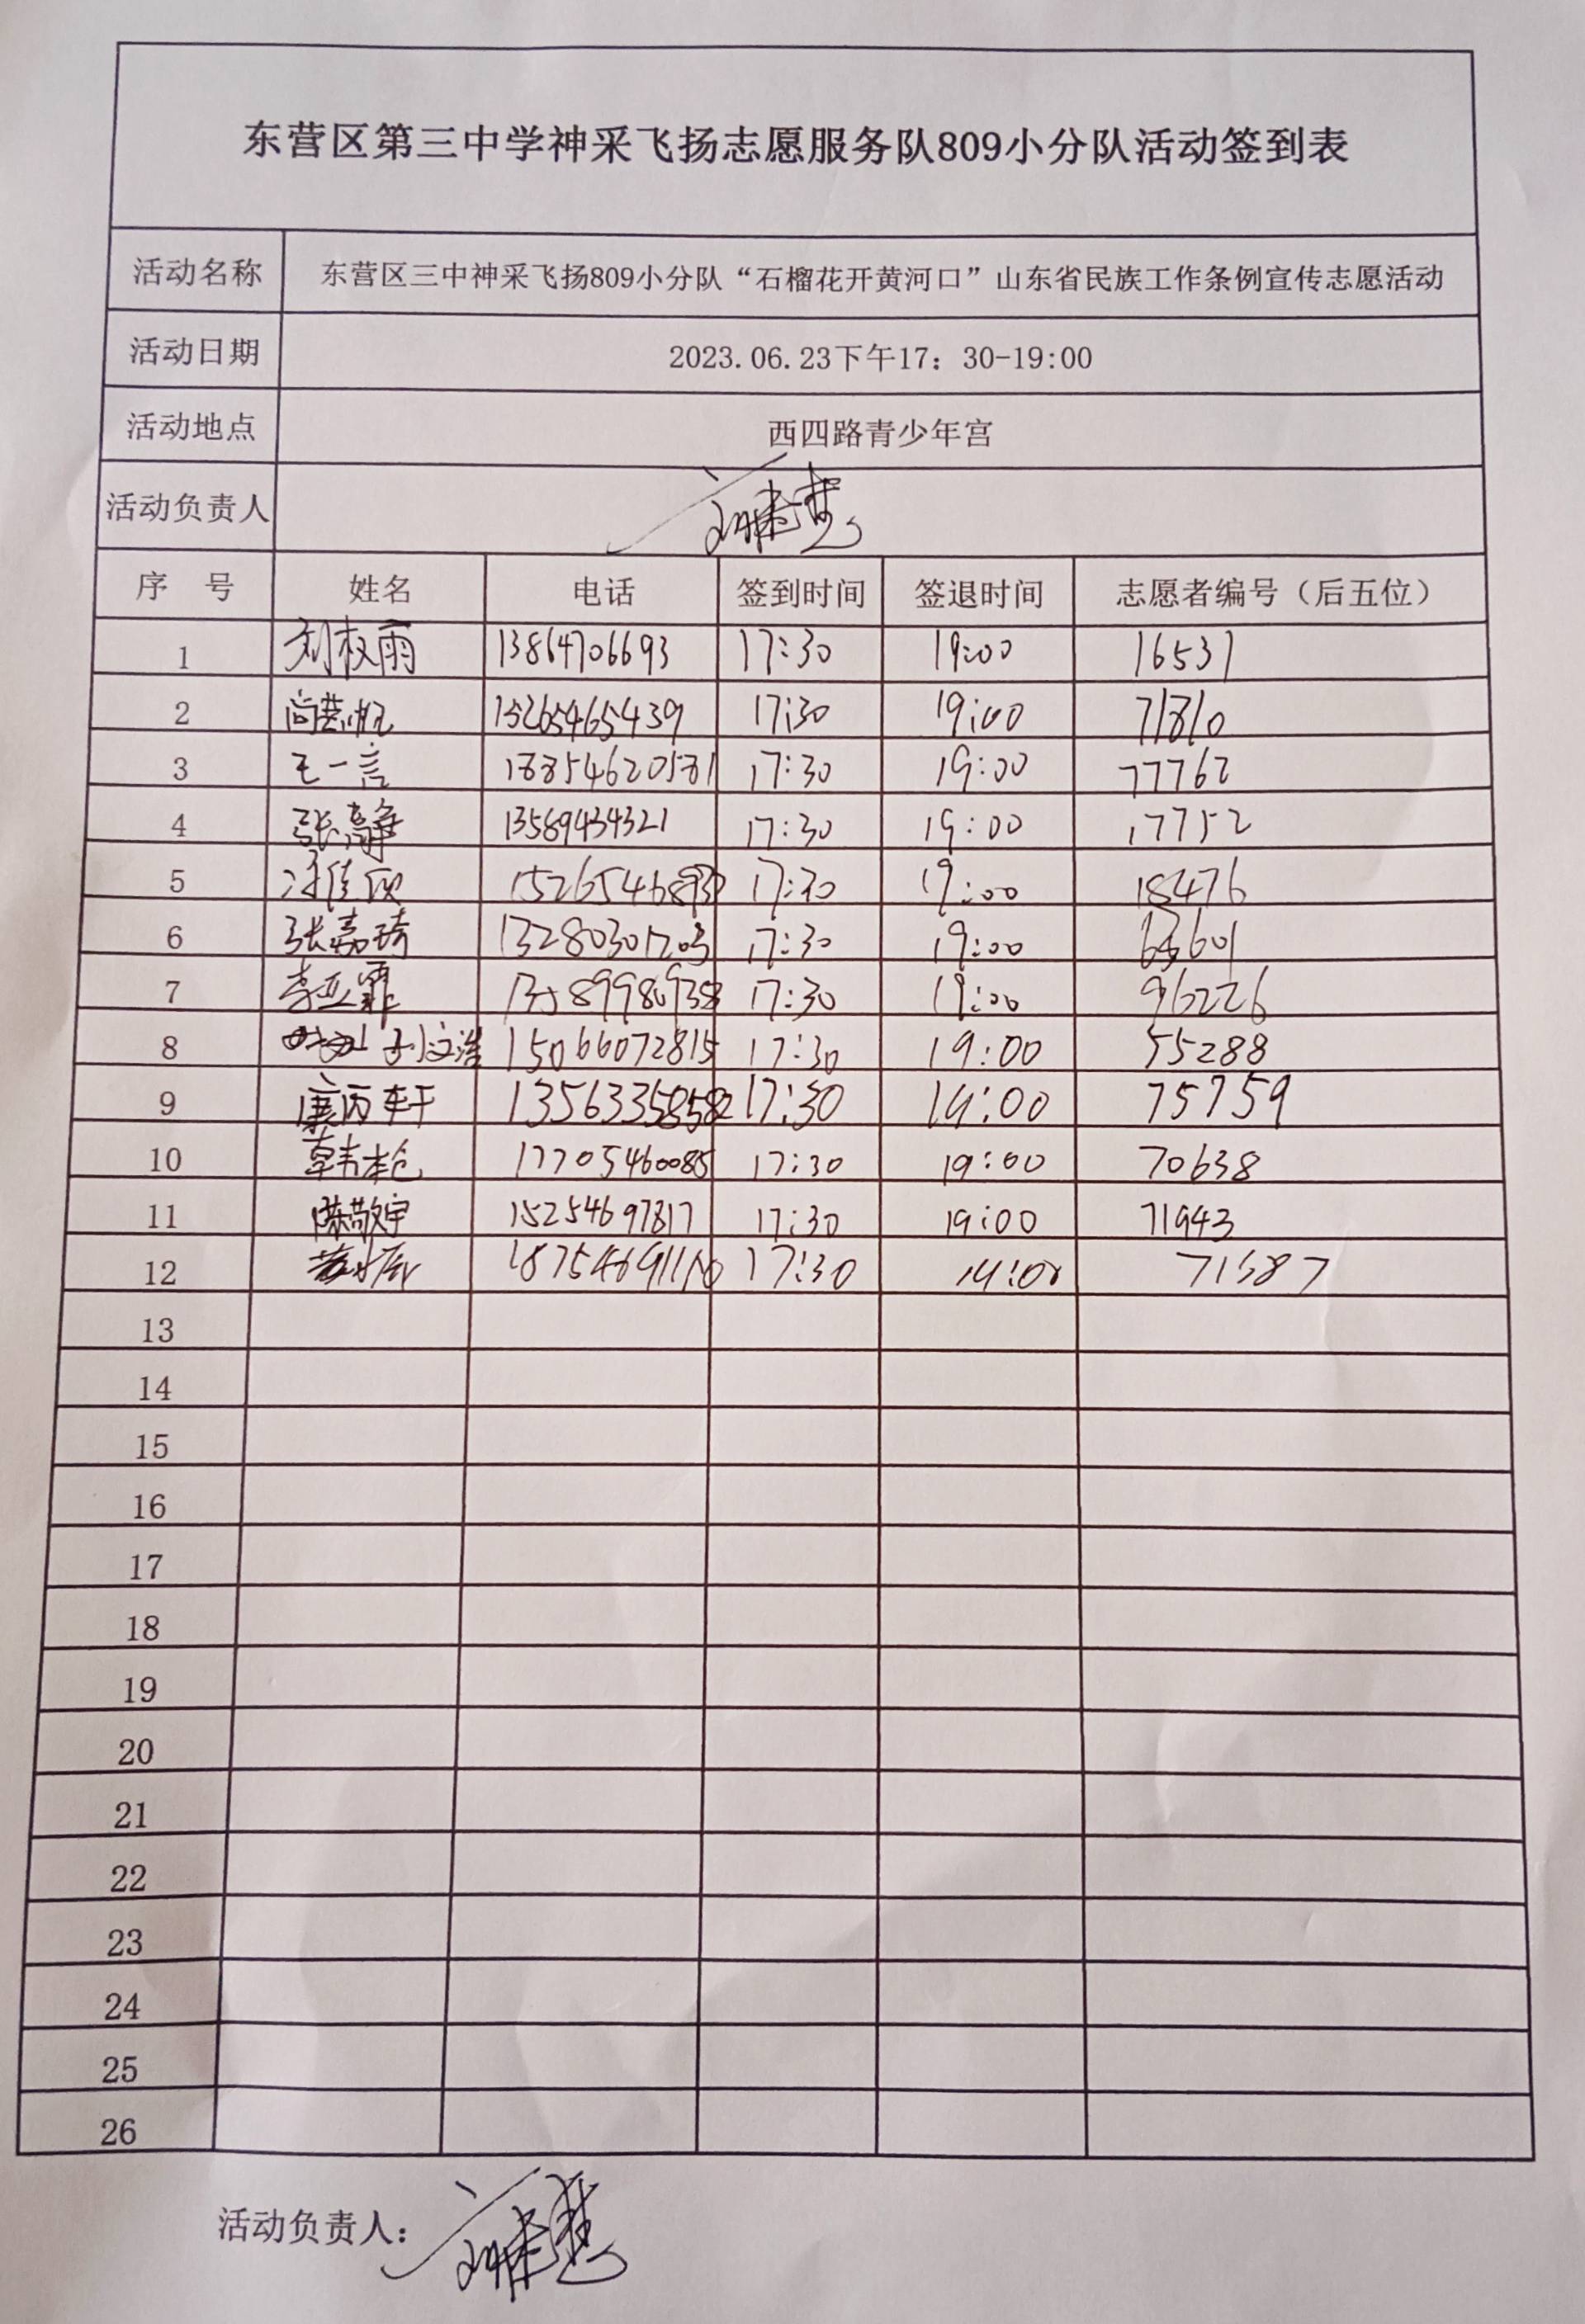 东营区第三中学神采飞扬志愿服务队809小分队活动签到表
活动名称 东营区三中神采飞扬809小分队“石榴花开黄河口”山东省民族工作条例宣传志愿活动
活动日期 2023.06.23下午17：30-19:00
活动地点 西四路青少年宫
活动负责人
序 号 姓名 电话 签到时间 签退时间 志愿者编号（后五位）
1 刘权雨 13864706693 17:30 19:00 16531
2 15265465439 17:30 19:00 71810
3 王一言 18854620581 17:30 19:00 77762
4 13589434321 17:30 19:00 17752
5 17:30 19:00 18476
6 张嘉琦 17:30 19:00
7 17:30 19:00 96226
8 孙文浩 15066072815 17:30 19:00 55288
9 17:30 19:00 75759
10 17705460085 17:30 19:00 70638
11 陈敬宇 15254697817 17:30 19:00 71943
12 17:30 19:00 71587
13
14
15
16
17
18
19
20
21
22
23
24
25
26
活动负责人：